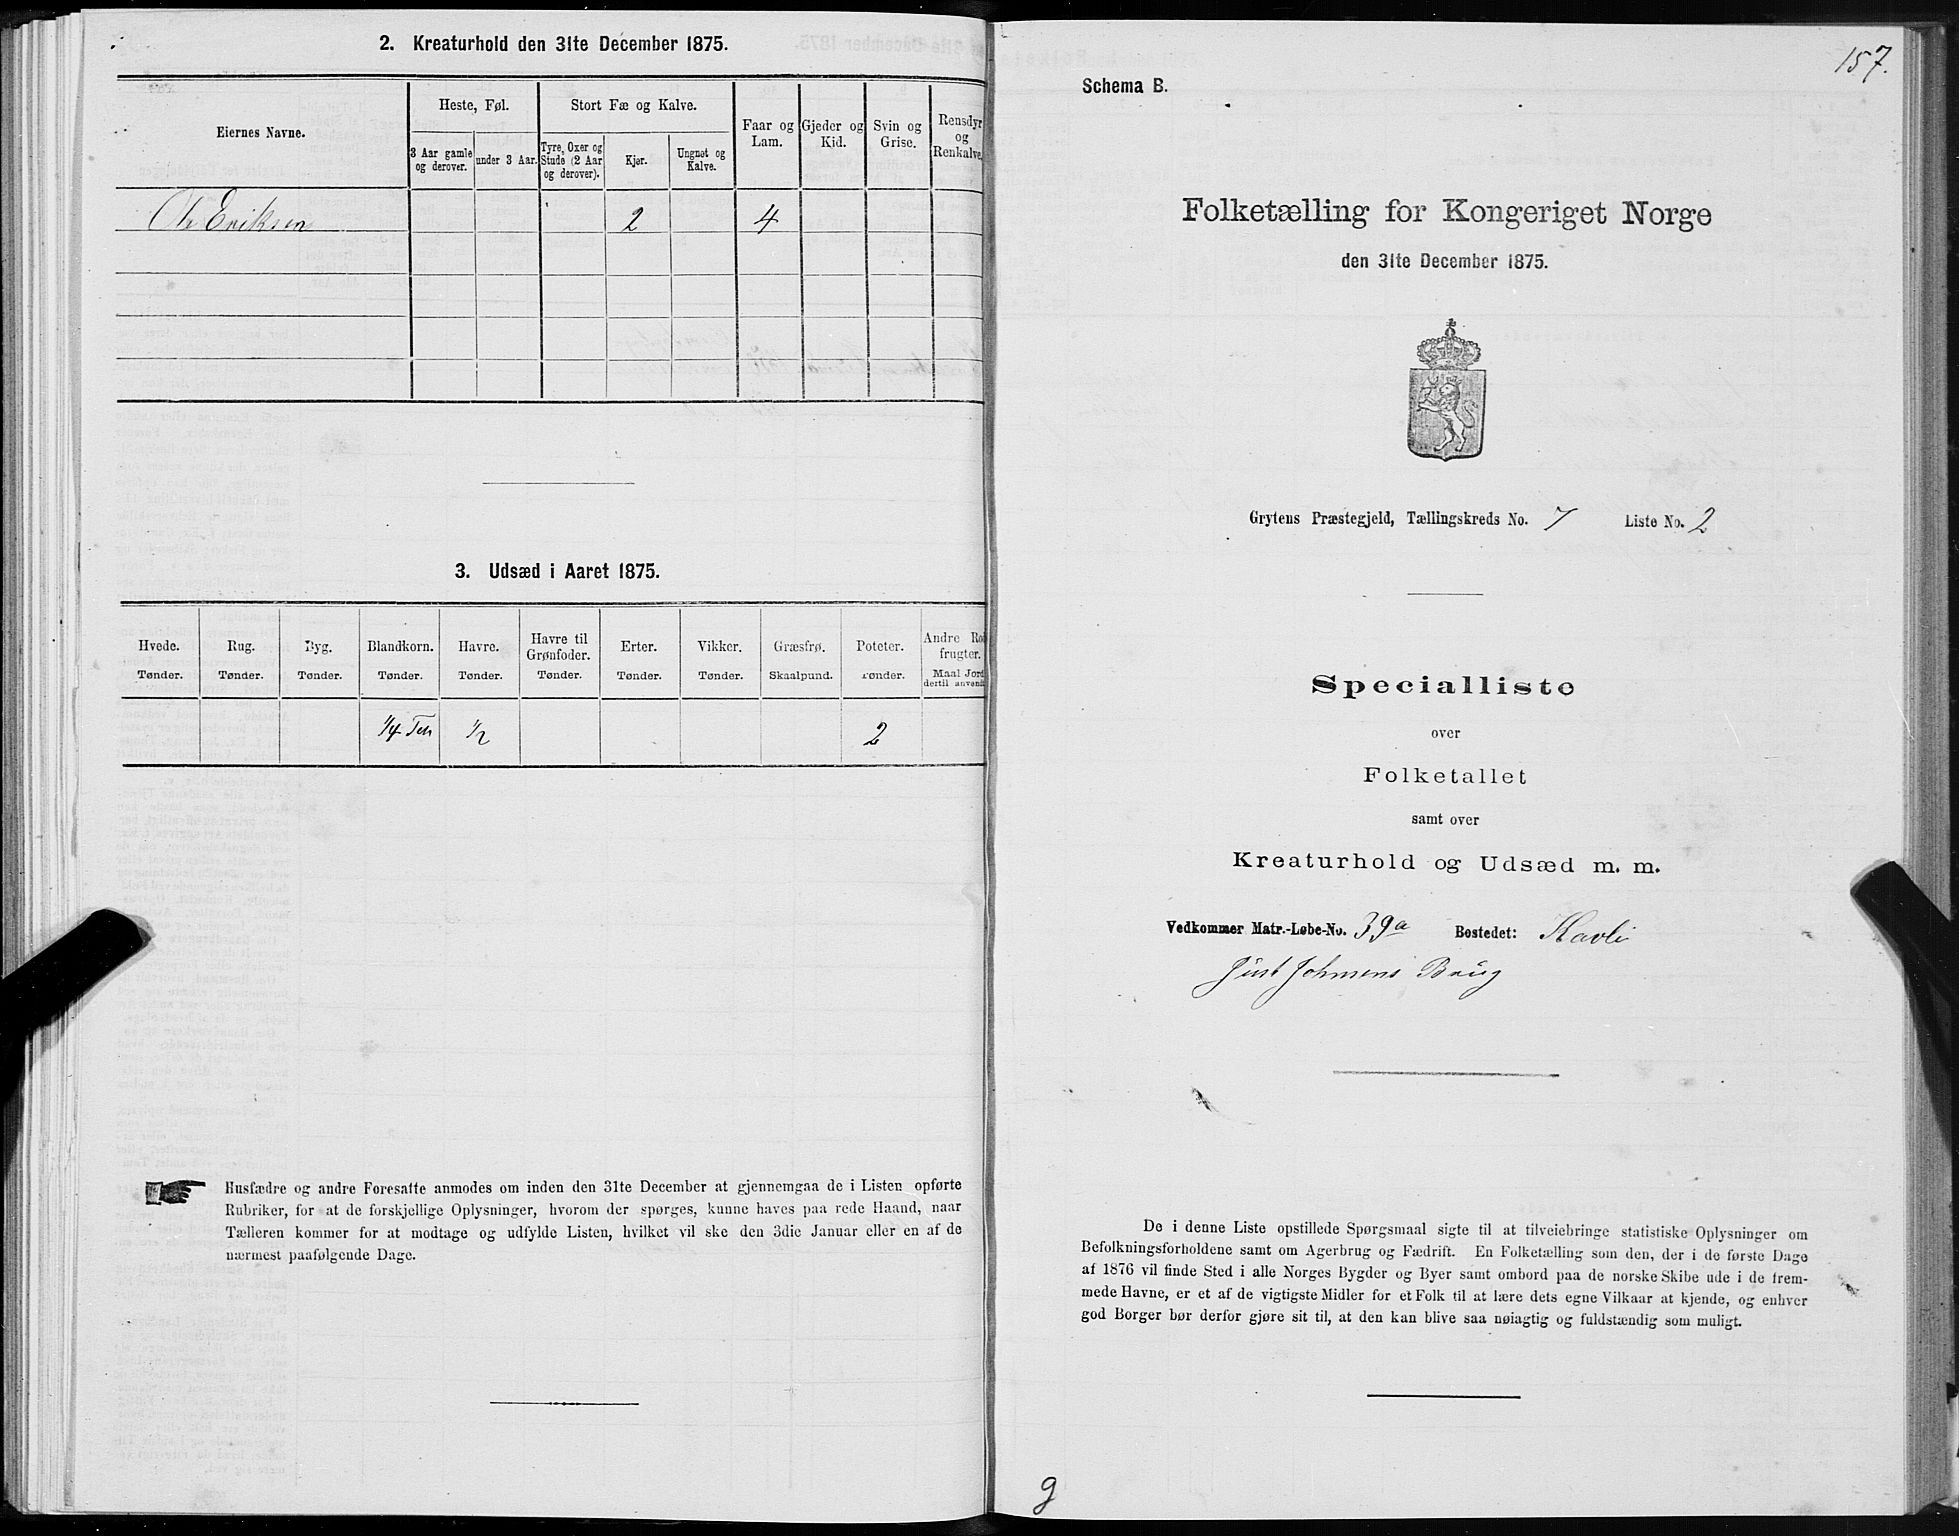 2. Kreaturhold den 31te December 1875.
Eiernes Navne.
Heste, Føl.
Stort Fæ og Kalve.
Faar og Lam.
Gjeder og Kid.
Svin og Grise.
Rensdyr og Renkalve.
3 Aar gamle og derover.
under 3 Aar.
Tyre, Oxer og Stude (2 Aar og derover).
Kjør.
Ungnøt og Kalve.
Ole Eriksen 2 4
3. Udsæd i Aaret 1875.
Hvede. Rug. Byg. Blandkorn. Havre. Havre til Grønfoder. Erter. Vikker. Græsfrø. Poteter. Andre Rodfrugter.
Tønder. Tønder. Tønder. Tønder. Tønder. Tønder. Tønder. Tønder. Skaalpund. Tønder. Maal Jord dertil anvendt
1/4 1/2 2
Husfædre og andre Foresatte anmodes om inden den 31te December at gjennemgaa de i Listen opførte
Rubriker, for at de forskjellige Oplysninger, hvorom der spørges, kunne haves paa rede Haand, naar
Tælleren kommer for at modtage og udfylde Listen, hvilket vil ske den 3die Januar eller en af de
nærmest paafølgende Dage.
157.
Schema B.
Folketælling for Kongeriget Norge
den 31te December 1875.
Grytens Præstegjeld, Tællingskreds No. 7 Liste No. 2
Specialliste
over
Folketallet
samt over
Kreaturhold og Udsæd m. m.
Vedkommer Matr.-Løbe-No. 39a Bostedet: Havli
Just Johnsens Brug
De i denne Liste opstillede Spørgsmaal sigte til at tilveiebringe statistiske Oplysninger om
Befolkningsforholdene samt om Agerbrug og Fædrift. En Folketælling som den, der i de første Dage
af 1876 vil finde Sted i alle Norges Bygder og Byer samt ombord paa de norske Skibe ude i de frem-
mede Havne, er et af de vigtigste Midler for et Folk til at lære dets egne Vilkaar at kjende, og enhver
god Borger bør derfor gjøre sit til, at den kan blive saa nøiagtig og fuldstændig som muligt.
g